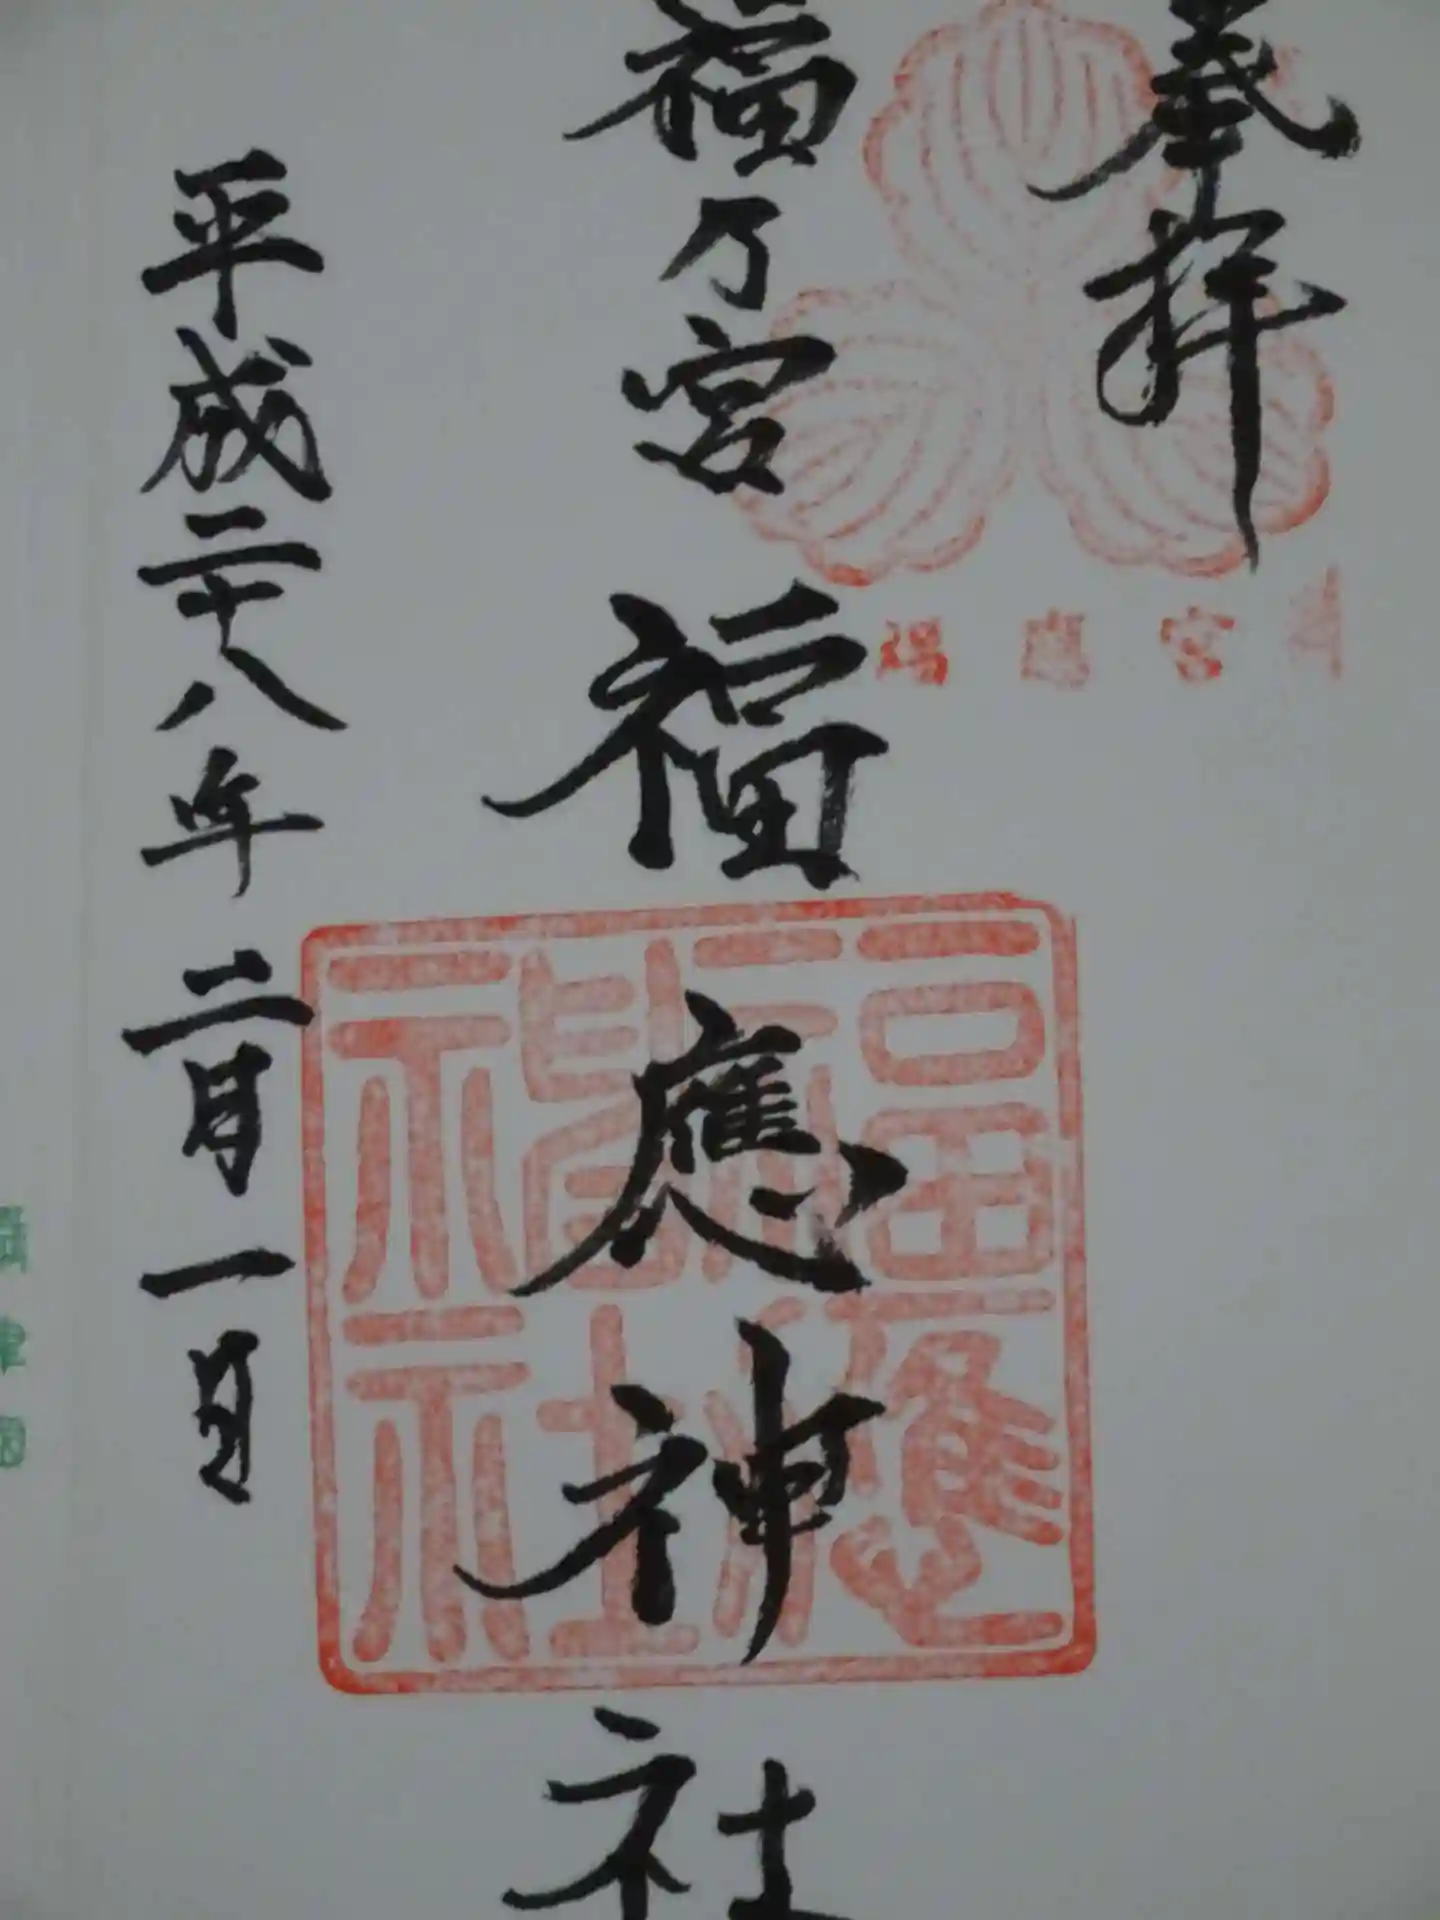 奉拝
福ケ宮 福應神社
福應神社
平成二十八年 二月 一日